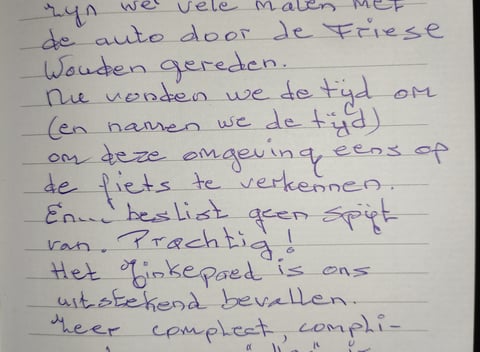 zijn we vele malen met
de auto door de Friese
Wouden gereden.
Nu vonden we de tijd om
(en namen we de tijd)
om deze omgeving eens op
de fiets te verkennen.
En... beslist geen spijt
van. Prachtig!
Het is ons
uitstekend bevallen.
Zeer compleet, compli-